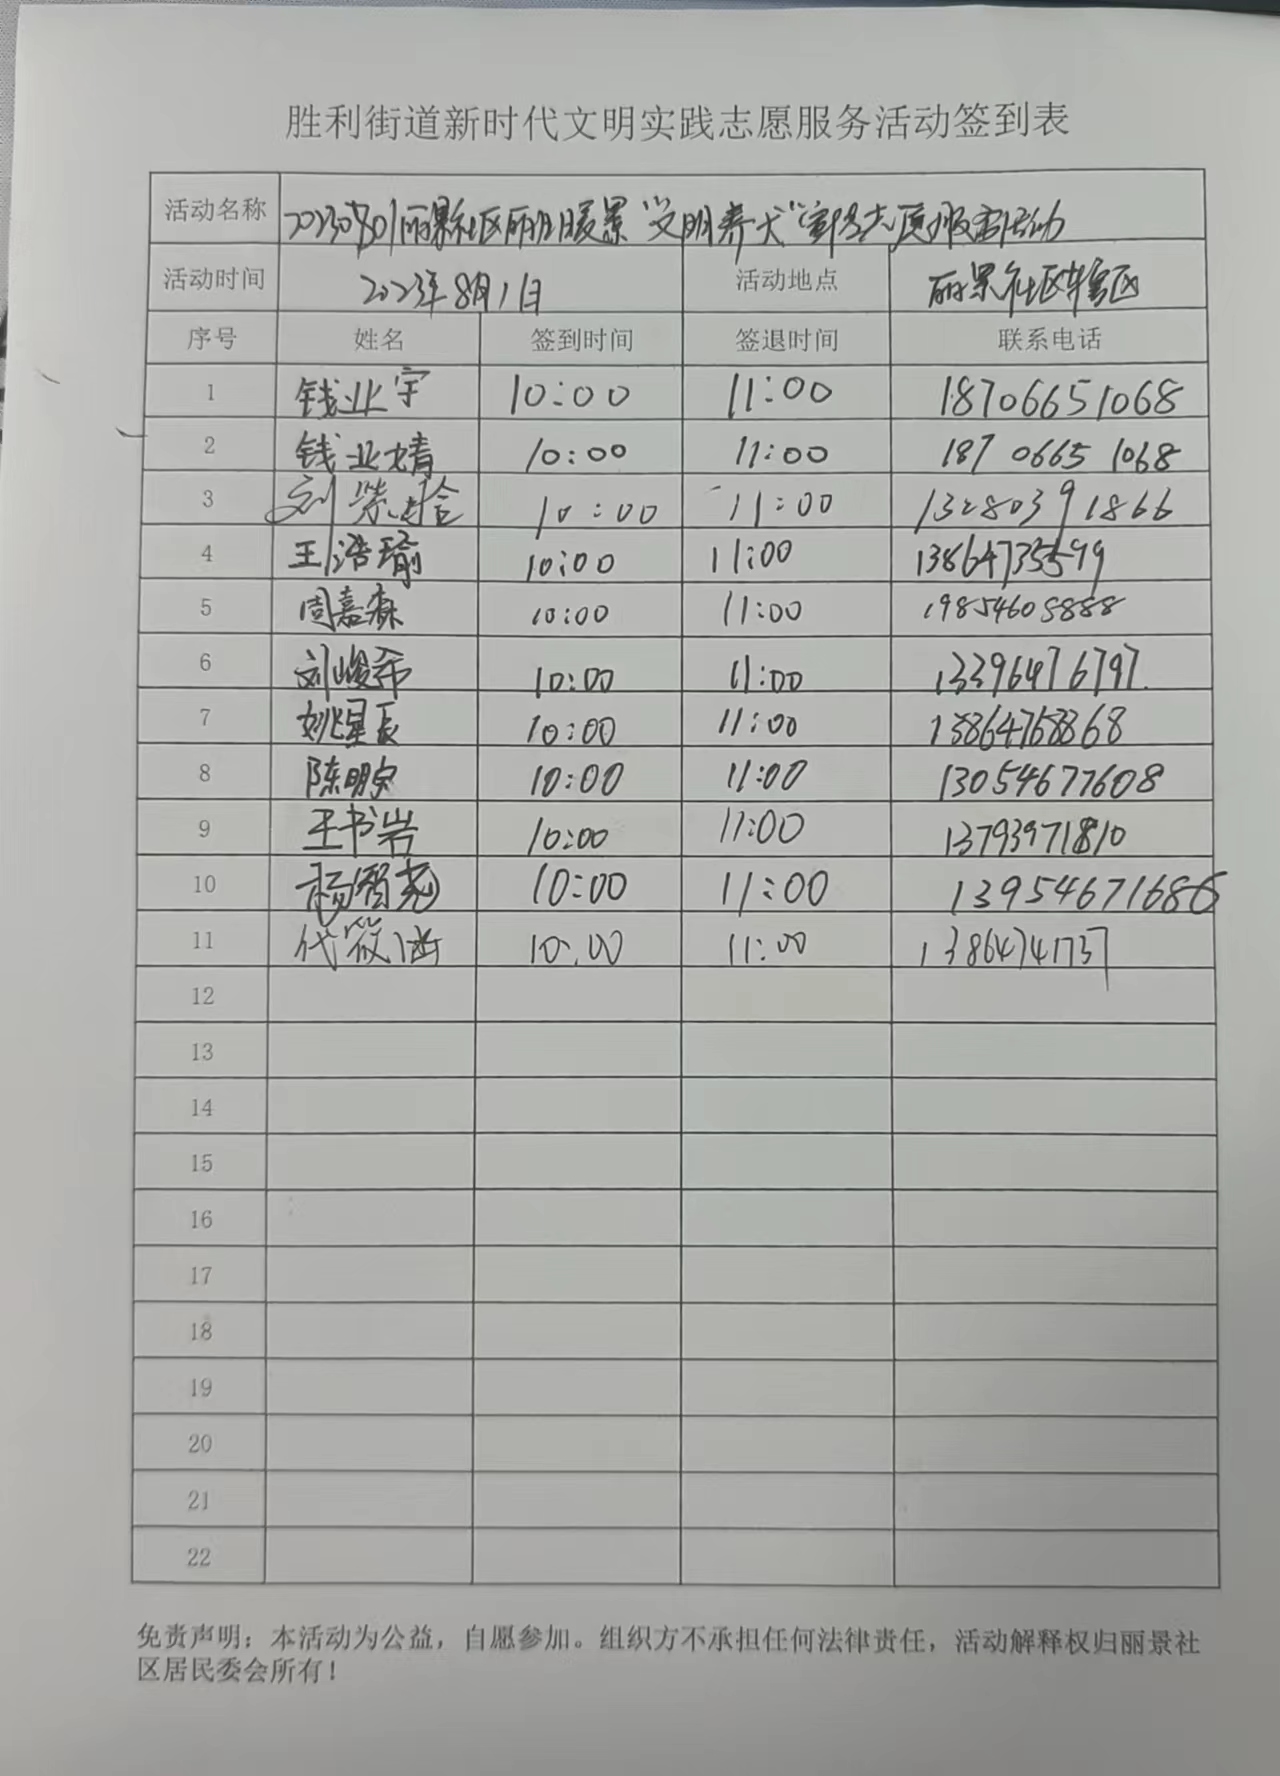 胜利街道新时代文明实践志愿服务活动签到表
活动名称 20230801丽景社区丽日暖景“文明养犬”宣传志愿服务活动
活动时间 2023年8月1日 活动地点 丽景社区辖区
序号 姓名 签到时间 签退时间 联系电话
1 钱业宇 10:00 11:00 18706651068
2 钱业婧 10:00 11:00 187 0665 1068
3 刘 10:00 11:00 13280391866
4 王浩瑜 10:00 11:00 13864735599
5 周嘉森 10:00 11:00 19854608888
6 刘峻希 10:00 11:00 13396476797
7 姚星辰 10:00 11:00 13864768868
8 陈明宗 10:00 11:00 13054677608
9 王书岩 10:00 11:00 13793971810
10 杨智尧 10:00 11:00 13954671686
11 代筱涵 10:00 11:00 13864741737
12
13
14
15
16
17
18
19
20
21
22
免责声明：本活动为公益，自愿参加。组织方不承担任何法律责任，活动解释权归丽景社
区居民委会所有！